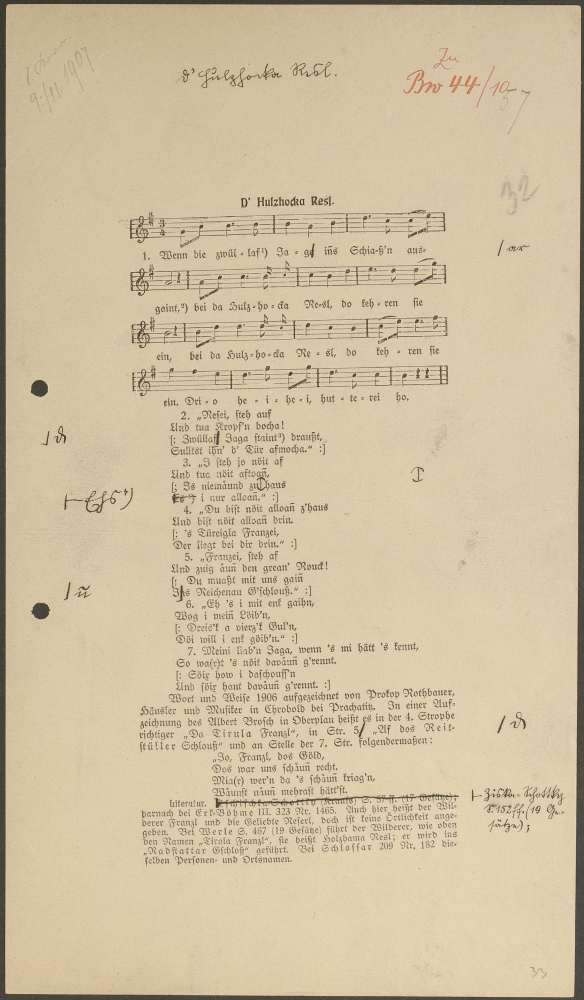 d' Hulzhocka Resl.
Zu
Bw 44/10
37
9./11. 1907
32
D' Hulzhocka Resl.
1. Wenn die zwül - laf¹) Ja - ga ins Schia-ß'n aus-
gaint,²) bei da Hulz-ho-cka Re-sl, do keh-ren sie
ein, bei da Hulz-ho-cka Re-sl, do keh-ren sie
ein. Dri-o he-i-he-i, hut-te-rei ho.
2. „Resei, steh auf
Und tua Kropf'n bocha!
[: Zwüllaf Jaga staint³) draußt,
Sulltst ihn' d' Tür afmocha." :]
3. „I steh jo nöit af
Und tua nöit aftoañ,
[: Is niemäund zu Haus
i nur alloañ." :]
Es⁴)
4. „Du bist nöit alloañ z'haus
Und bist nöit alloañ drin.
[: 's Türeigla Franzei,
Der liegt bei dir drin." :]
5. „Franzei, steh af
Und zuig äuñ den grean' Rouck!
[: Du muaßt mit uns gaiñ
Ins Reichenau G'schlouß." :]
6. „Eh 's i mit enk gaihn,
Wog i meiñ Löib'n,
[: Dreis'k a vierz'k Gul'n,
Döi will i enk göib'n." :]
7. Meini liab'n Jaga, wenn 's mi hätt 's kennt,
So wa(r)t 's nöit daväuñ g'rennt.
[: Söix how i daschouss'n
Und söix hant daväuñ g'rennt. :]
Wort und Weise 1906 aufgezeichnet von Prokop Rothbauer,
Häusler und Musiker in Chrobold bei Prachatitz. In einer Auf-
zeichnung des Albert Brosch in Oberplau heißt es in der 4. Strophe
richtiger „Da Tirula Franzl", in Str. 5 „Af dos Reit-
stüller Schlouß" und an Stelle der 7. Str. folgendermaßen:
„Jo, Franzl, dos Göld,
Dos war uns schäuñ recht.
Mia(r) wer'n da 's schäuñ kriag'n,
Wäunst näuñ mehrast hätt'st.
Literatur. Hruschka-Schottky (Krauß) S. 57 ff. (17 Gesätze);
darnach bei Erk-Böhme III. 323 Nr. 1465. Auch hier heißt der Wil-
derer Franzl und die Geliebte Reserl, doch ist keine Örtlichkeit ange-
geben. Bei Werle S. 467 (19 Gesätze) führt der Wilderer, wie oben
den Namen „Tirola Franzl", sie heißt Holzhama Resl; er wird ins
„Radstattar Gschloß" geführt. Bei Schlossar 209 Nr. 182 die-
selben Personen- und Ortsnamen.
Ziska-Schottky
S. 152 ff. (19 Ge-
sätze);
33